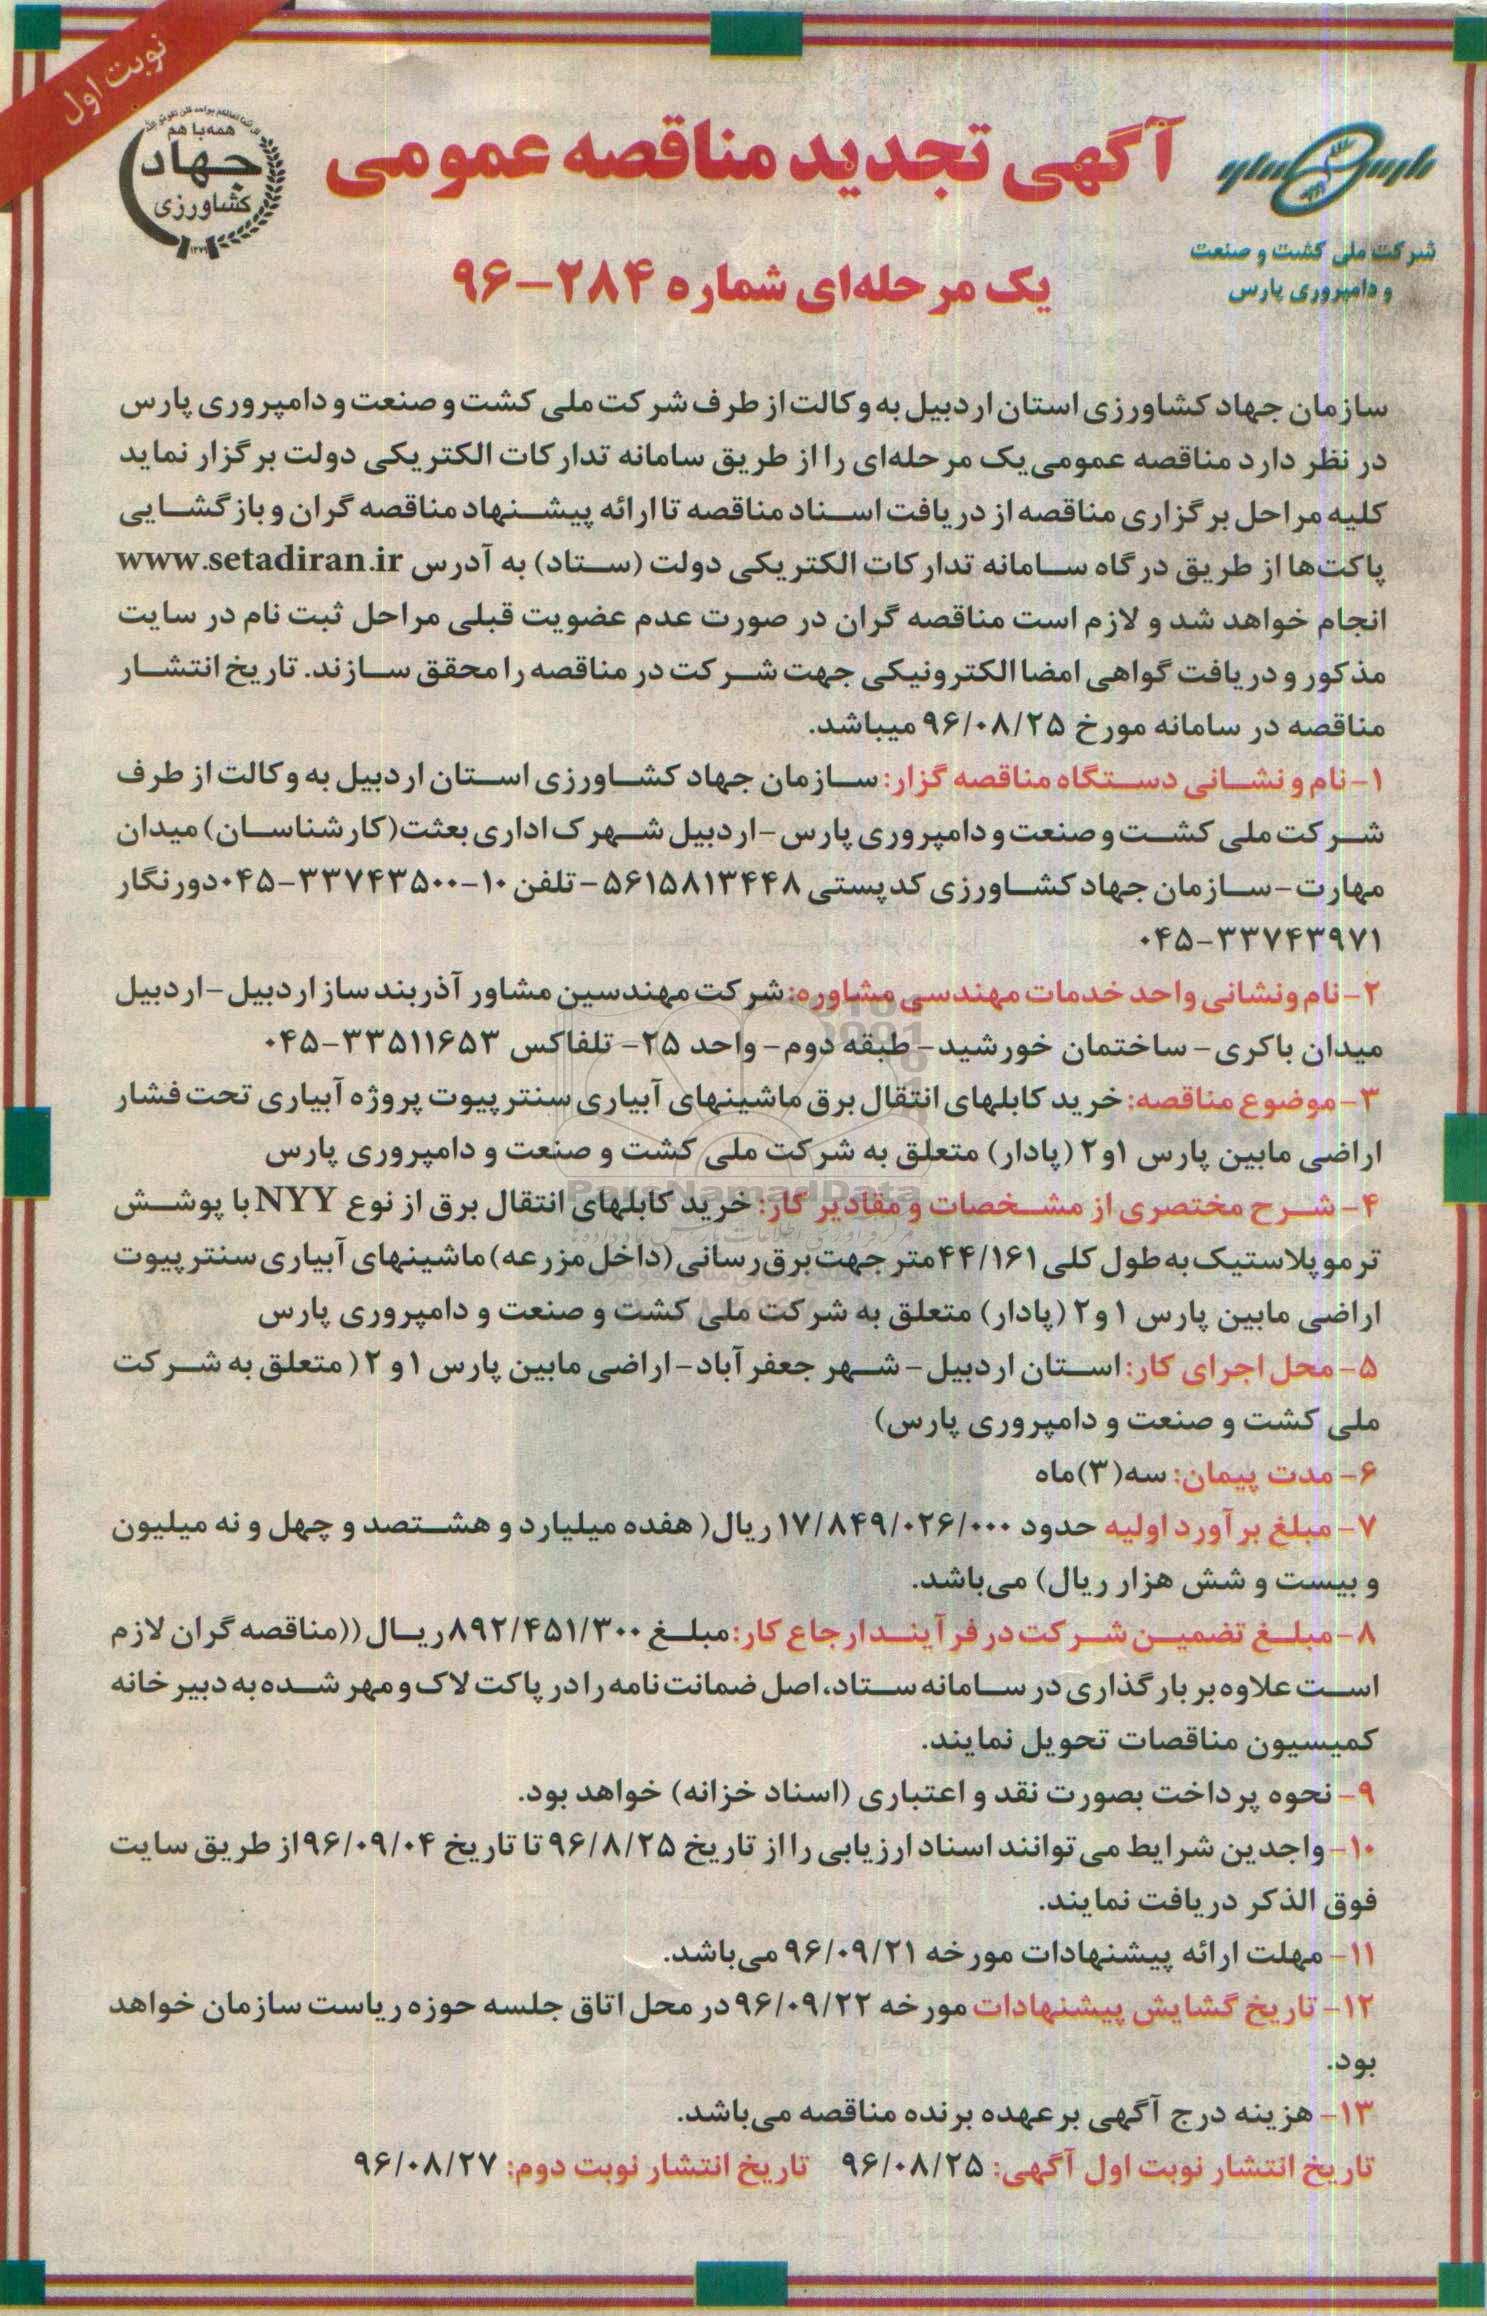 نوبت اول
همه با هم
جهاد
کشاورزی
۱۳۷۹
پارس
شرکت ملی کشت و صنعت
و دامپروری پارس
آگهی تجدید مناقصه عمومی
یک مرحله‌ای شماره ۲۸۴-۹۶
سازمان جهاد کشاورزی استان اردبیل به وکالت از طرف شرکت ملی کشت و صنعت و دامپروری پارس
در نظر دارد مناقصه عمومی یک مرحله‌ای را از طریق سامانه تدارکات الکتریکی دولت برگزار نماید
کلیه مراحل برگزاری مناقصه از دریافت اسناد مناقصه تا ارائه پیشنهاد مناقصه گران و بازگشایی
پاکت‌ها از طریق درگاه سامانه تدارکات الکتریکی دولت (ستاد) به آدرس www.setadiran.ir
انجام خواهد شد و لازم است مناقصه گران در صورت عدم عضویت قبلی مراحل ثبت نام در سایت
مذکور و دریافت گواهی امضا الکترونیکی جهت شرکت در مناقصه را محقق سازند. تاریخ انتشار
مناقصه در سامانه مورخ ۹۶/۰۸/۲۵ میباشد.
۱- نام و نشانی دستگاه مناقصه گزار: سازمان جهاد کشاورزی استان اردبیل به وکالت از طرف
شرکت ملی کشت و صنعت و دامپروری پارس -اردبیل شهرک اداری بعثت(کارشناسان) میدان
مهارت- سازمان جهاد کشاورزی کدپستی ۵۶۱۵۸۱۳۴۴۸ - تلفن ۱۰-۳۳۷۴۳۵۰۰-۰۴۵ دورنگار
۰۴۵-۳۳۷۴۳۹۷۱
۲- نام ونشانی واحد خدمات مهندسی مشاوره: شرکت مهندسین مشاور آذربند ساز اردبیل -اردبیل
میدان باکری- ساختمان خورشید- طبقه دوم- واحد ۲۵- تلفاکس ۳۳۵۱۱۶۵۳-۰۴۵
۳-موضوع مناقصه: خرید کابلهای انتقال برق ماشینهای آبیاری سنتر پیوت پروژه آبیاری تحت فشار
اراضی مابین پارس ۱و۲ (پادار) متعلق به شرکت ملی کشت و صنعت و دامپروری پارس
ParsNamadData
۴- شرح مختصری از مشخصات و مقادیر کار: خرید کابلهای انتقال برق از نوع NYY با پوشش
ترموپلاستیک به طول کلی ۴۴/۱۶۱ متر جهت برق‌رسانی (داخل مزرعه) ماشینهای آبیاری سنتر پیوت
اراضی مابین پارس ۱و۲ (پادار) متعلق به شرکت ملی کشت و صنعت و دامپروری پارس
۵- محل اجرای کار: استان اردبیل- شهر جعفرآباد-اراضی مابین پارس ۱و۲ (متعلق به شرکت
ملی کشت و صنعت و دامپروری پارس)
۶- مدت پیمان: سه(۳)ماه
۷- مبلغ برآورد اولیه حدود ۱۷/۸۴۹/۰۲۶/۰۰۰ ریال( هفده میلیارد و هشتصد و چهل و نه میلیون
و بیست و شش هزار ریال) می‌باشد.
۸- مبلغ تضمین شرکت در فرآیند ارجاع کار: مبلغ ۸۹۲/۴۵۱/۳۰۰ ریال((مناقصه گران لازم
است علاوه بر بارگذاری در سامانه ستاد، اصل ضمانت نامه را در پاکت لاک و مهر شده به دبیرخانه
کمیسیون مناقصات تحویل نمایند.
۹- نحوه پرداخت بصورت نقد و اعتباری (اسناد خزانه) خواهد بود.
۱۰- واجدین شرایط می توانند اسناد ارزیابی را از تاریخ ۹۶/۸/۲۵ تا تاریخ ۹۶/۰۹/۰۴ از طریق سایت
فوق الذکر دریافت نمایند.
۱۱- مهلت ارائه پیشنهادات مورخه ۹۶/۰۹/۲۱ می‌باشد.
۱۲- تاریخ گشایش پیشنهادات مورخه ۹۶/۰۹/۲۲ در محل اتاق جلسه حوزه ریاست سازمان خواهد
بود.
۱۳- هزینه درج آگهی برعهده برنده مناقصه می‌باشد.
تاریخ انتشار نوبت اول آگهی: ۹۶/۰۸/۲۵ تاریخ انتشار نوبت دوم: ۹۶/۰۸/۲۷